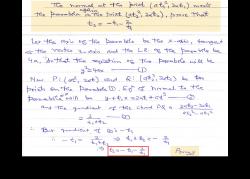 The normal at the point (at₁², 2at₁) meets
again
the parabola in the point (at₂², 2at₂), prove that
t₂ = -t₁ - 2/t₁
Let the axis of the parabola be the x-axis, tangent
at the vertex y-axis and the L.R. of the parabola be
4a, so that the equation of the parabola will be
y² = 4ax
Now P: (at₁², 2at₁) and Q: (at₂², 2at₂) be two
points on the parabola ① Eqⁿ of normal to the
parabola will be y + t₁x = 2at₁ + at₁³
and the gradient of the chord PQ = 2at₂ - 2at₁ / at₂² - at₁²
= 2 / t₁ + t₂
But gradient of ② is -t₁
∴ -t₁ = 2 / t₁ + t₂ ⇒ t₁ + t₂ = -2/t₁
⇒ t₂ = -t₁ - 2/t₁
Proved